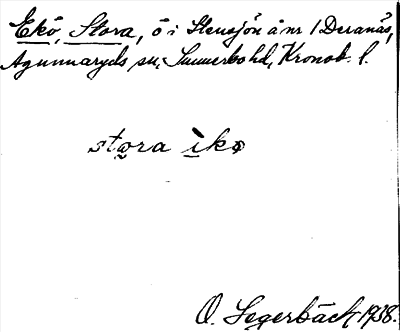 Ekö, Stora, ö i Stensjön å nr 1 Deranäs,
Agunnaryds sn, Sunnerbo hd, Kronob. l.
stora ikə
O. Segerbäck 1938.